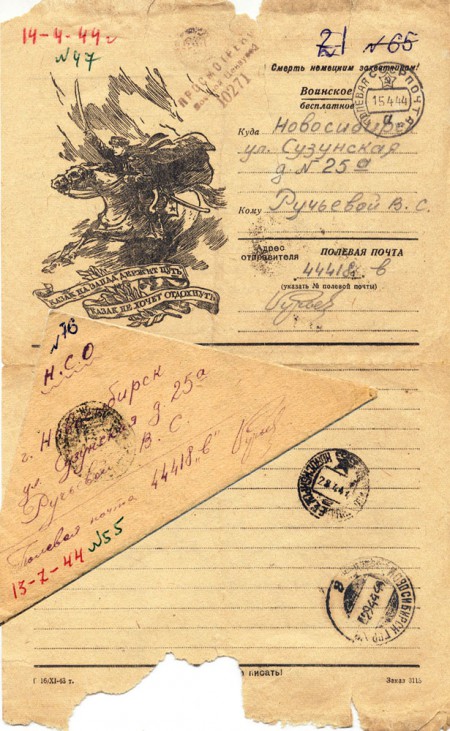 14-4-44 г.
N47
21 N65
ПРОСМОТРЕНО
Военной Цензурой
10271
Смерть немецким захватчикам!
Воинское
бесплатное
ПОЛЕВАЯ ПОЧТА
15.4.44
Куда Новосибирск
ул. Сузунская
д. N 25а
Кому Ручьевой В. С.
Адрес отправителя
ПОЛЕВАЯ ПОЧТА
44418 в
(указать № полевой почты)
КАЗАК НА ЗАПАД ДЕРЖИТ ПУТЬ,
КАЗАК НЕ ХОЧЕТ ОТДОХНУТЬ
N76
Н.С.О
г. Новосибирск
ул. Сузунская д 25а
Ручьевой В. С.
Полевая почта 44418 „в"
13-7-44 N55
НОВОСИБИРСК
писать!
Заказ 3115